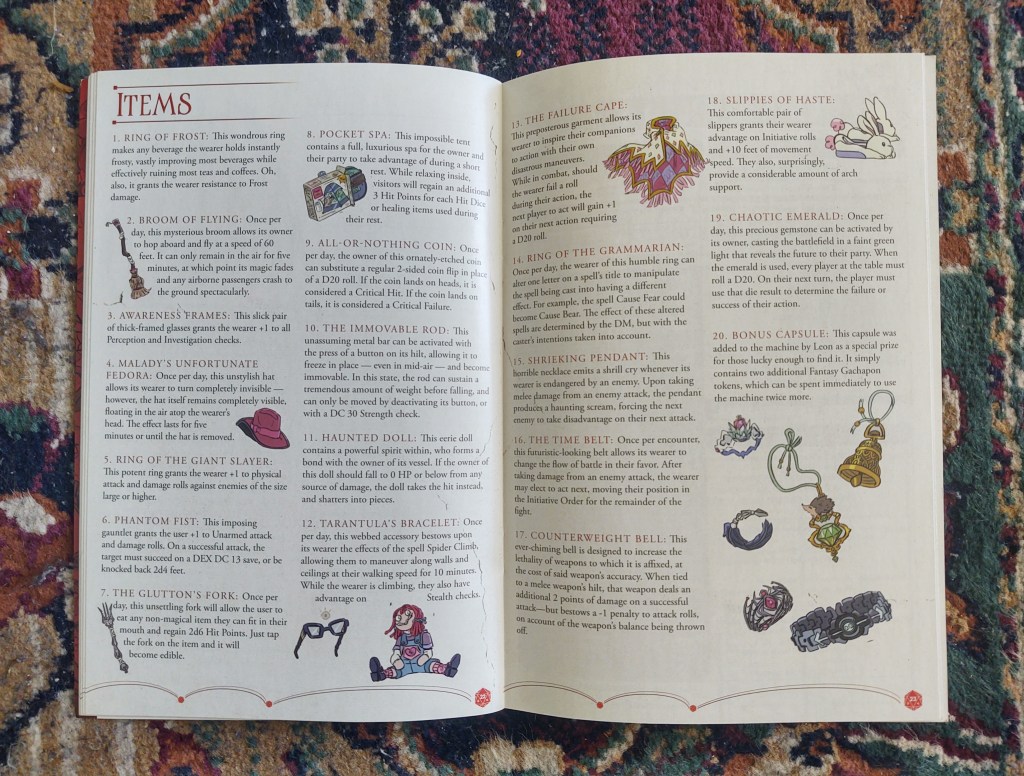 ITEMS
1. RING OF FROST: This wondrous ring
makes any beverage the wearer holds instantly
frosty, vastly improving most beverages while
effectively ruining most teas and coffees. Oh,
also, it grants the wearer resistance to Frost
damage.
2. BROOM OF FLYING: Once per
day, this mysterious broom allows its owner
to hop aboard and fly at a speed of 60
feet. It can only remain in the air for five
minutes, at which point its magic fades
and any airborne passengers crash to
the ground spectacularly.
3. AWARENESS FRAMES: This slick pair
of thick-framed glasses grants the wearer +1 to all
Perception and Investigation checks.
4. MALADY'S UNFORTUNATE
FEDORA: Once per day, this unstylish hat
allows its wearer to turn completely invisible —
however, the hat itself remains completely visible,
floating in the air atop the wearer's
head. The effect lasts for five
minutes or until the hat is removed.
5. RING OF THE GIANT SLAYER:
This potent ring grants the wearer +1 to physical
attack and damage rolls against enemies of the size
large or higher.
6. PHANTOM FIST: This imposing
gauntlet grants the user +1 to Unarmed attack
and damage rolls. On a successful attack, the
target must succeed on a DEX DC 13 save, or be
knocked back 2d4 feet.
7. THE GLUTTON'S FORK: Once per
day, this unsettling fork will allow the user to
eat any non-magical item they can fit in their
mouth and regain 2d6 Hit Points. Just tap
the fork on the item and it will
become edible.
8. POCKET SPA: This impossible tent
contains a full, luxurious spa for the owner and
their party to take advantage of during a short
rest. While relaxing inside,
visitors will regain an additional
3 Hit Points for each Hit Dice
or healing items used during
their rest.
9. ALL-OR-NOTHING COIN: Once
per day, the owner of this ornately-etched coin
can substitute a regular 2-sided coin flip in place
of a D20 roll. If the coin lands on heads, it is
considered a Critical Hit. If the coin lands on
tails, it is considered a Critical Failure.
10. THE IMMOVABLE ROD: This
unassuming metal bar can be activated with
the press of a button on its hilt, allowing it to
freeze in place — even in mid-air — and become
immovable. In this state, the rod can sustain a
tremendous amount of weight before falling, and
can only be moved by deactivating its button, or
with a DC 30 Strength check.
11. HAUNTED DOLL: This eerie doll
contains a powerful spirit within, who forms a
bond with the owner of its vessel. If the owner of
this doll should fall to 0 HP or below from any
source of damage, the doll takes the hit instead,
and shatters into pieces.
12. TARANTULA'S BRACELET: Once
per day, this webbed accessory bestows upon
its wearer the effects of the spell Spider Climb,
allowing them to maneuver along walls and
ceilings at their walking speed for 10 minutes.
While the wearer is climbing, they also have
advantage on Stealth checks.
13. THE FAILURE CAPE:
This preposterous garment allows its
wearer to inspire their companions
to action with their own
disastrous maneuvers.
While in combat, should
the wearer fail a roll
during their action, the
next player to act will gain +1
on their next action requiring
a D20 roll.
14. RING OF THE GRAMMARIAN:
Once per day, the wearer of this humble ring can
alter one letter on a spell's title to manipulate
the spell being cast into having a different
effect. For example, the spell Cause Fear could
become Cause Bear. The effect of these altered
spells are determined by the DM, but with the
caster's intentions taken into account.
15. SHRIEKING PENDANT: This
horrible necklace emits a shrill cry whenever its
wearer is endangered by an enemy. Upon taking
melee damage from an enemy attack, the pendant
produces a haunting scream, forcing the next
enemy to take disadvantage on their next attack.
16. THE TIME BELT: Once per encounter,
this futuristic-looking belt allows its wearer to
change the flow of battle in their favor. After
taking damage from an enemy attack, the wearer
may elect to act next, moving their position in
the Initiative Order for the remainder of the
fight.
17. COUNTERWEIGHT BELL: This
ever-chiming bell is designed to increase the
lethality of weapons to which it is affixed, at
the cost of said weapon's accuracy. When tied
to a melee weapon's hilt, that weapon deals an
additional 2 points of damage on a successful
attack—but bestows a -1 penalty to attack rolls,
on account of the weapon's balance being thrown
off.
18. SLIPPIES OF HASTE:
This comfortable pair of
slippers grants their wearer
advantage on Initiative rolls
and +10 feet of movement
speed. They also, surprisingly,
provide a considerable amount of arch
support.
19. CHAOTIC EMERALD: Once per
day, this precious gemstone can be activated by
its owner, casting the battlefield in a faint green
light that reveals the future to their party. When
the emerald is used, every player at the table must
roll a D20. On their next turn, the player must
use that die result to determine the failure or
success of their action.
20. BONUS CAPSULE: This capsule was
added to the machine by Leon as a special prize
for those lucky enough to find it. It simply
contains two additional Fantasy Gachapon
tokens, which can be spent immediately to use
the machine twice more.